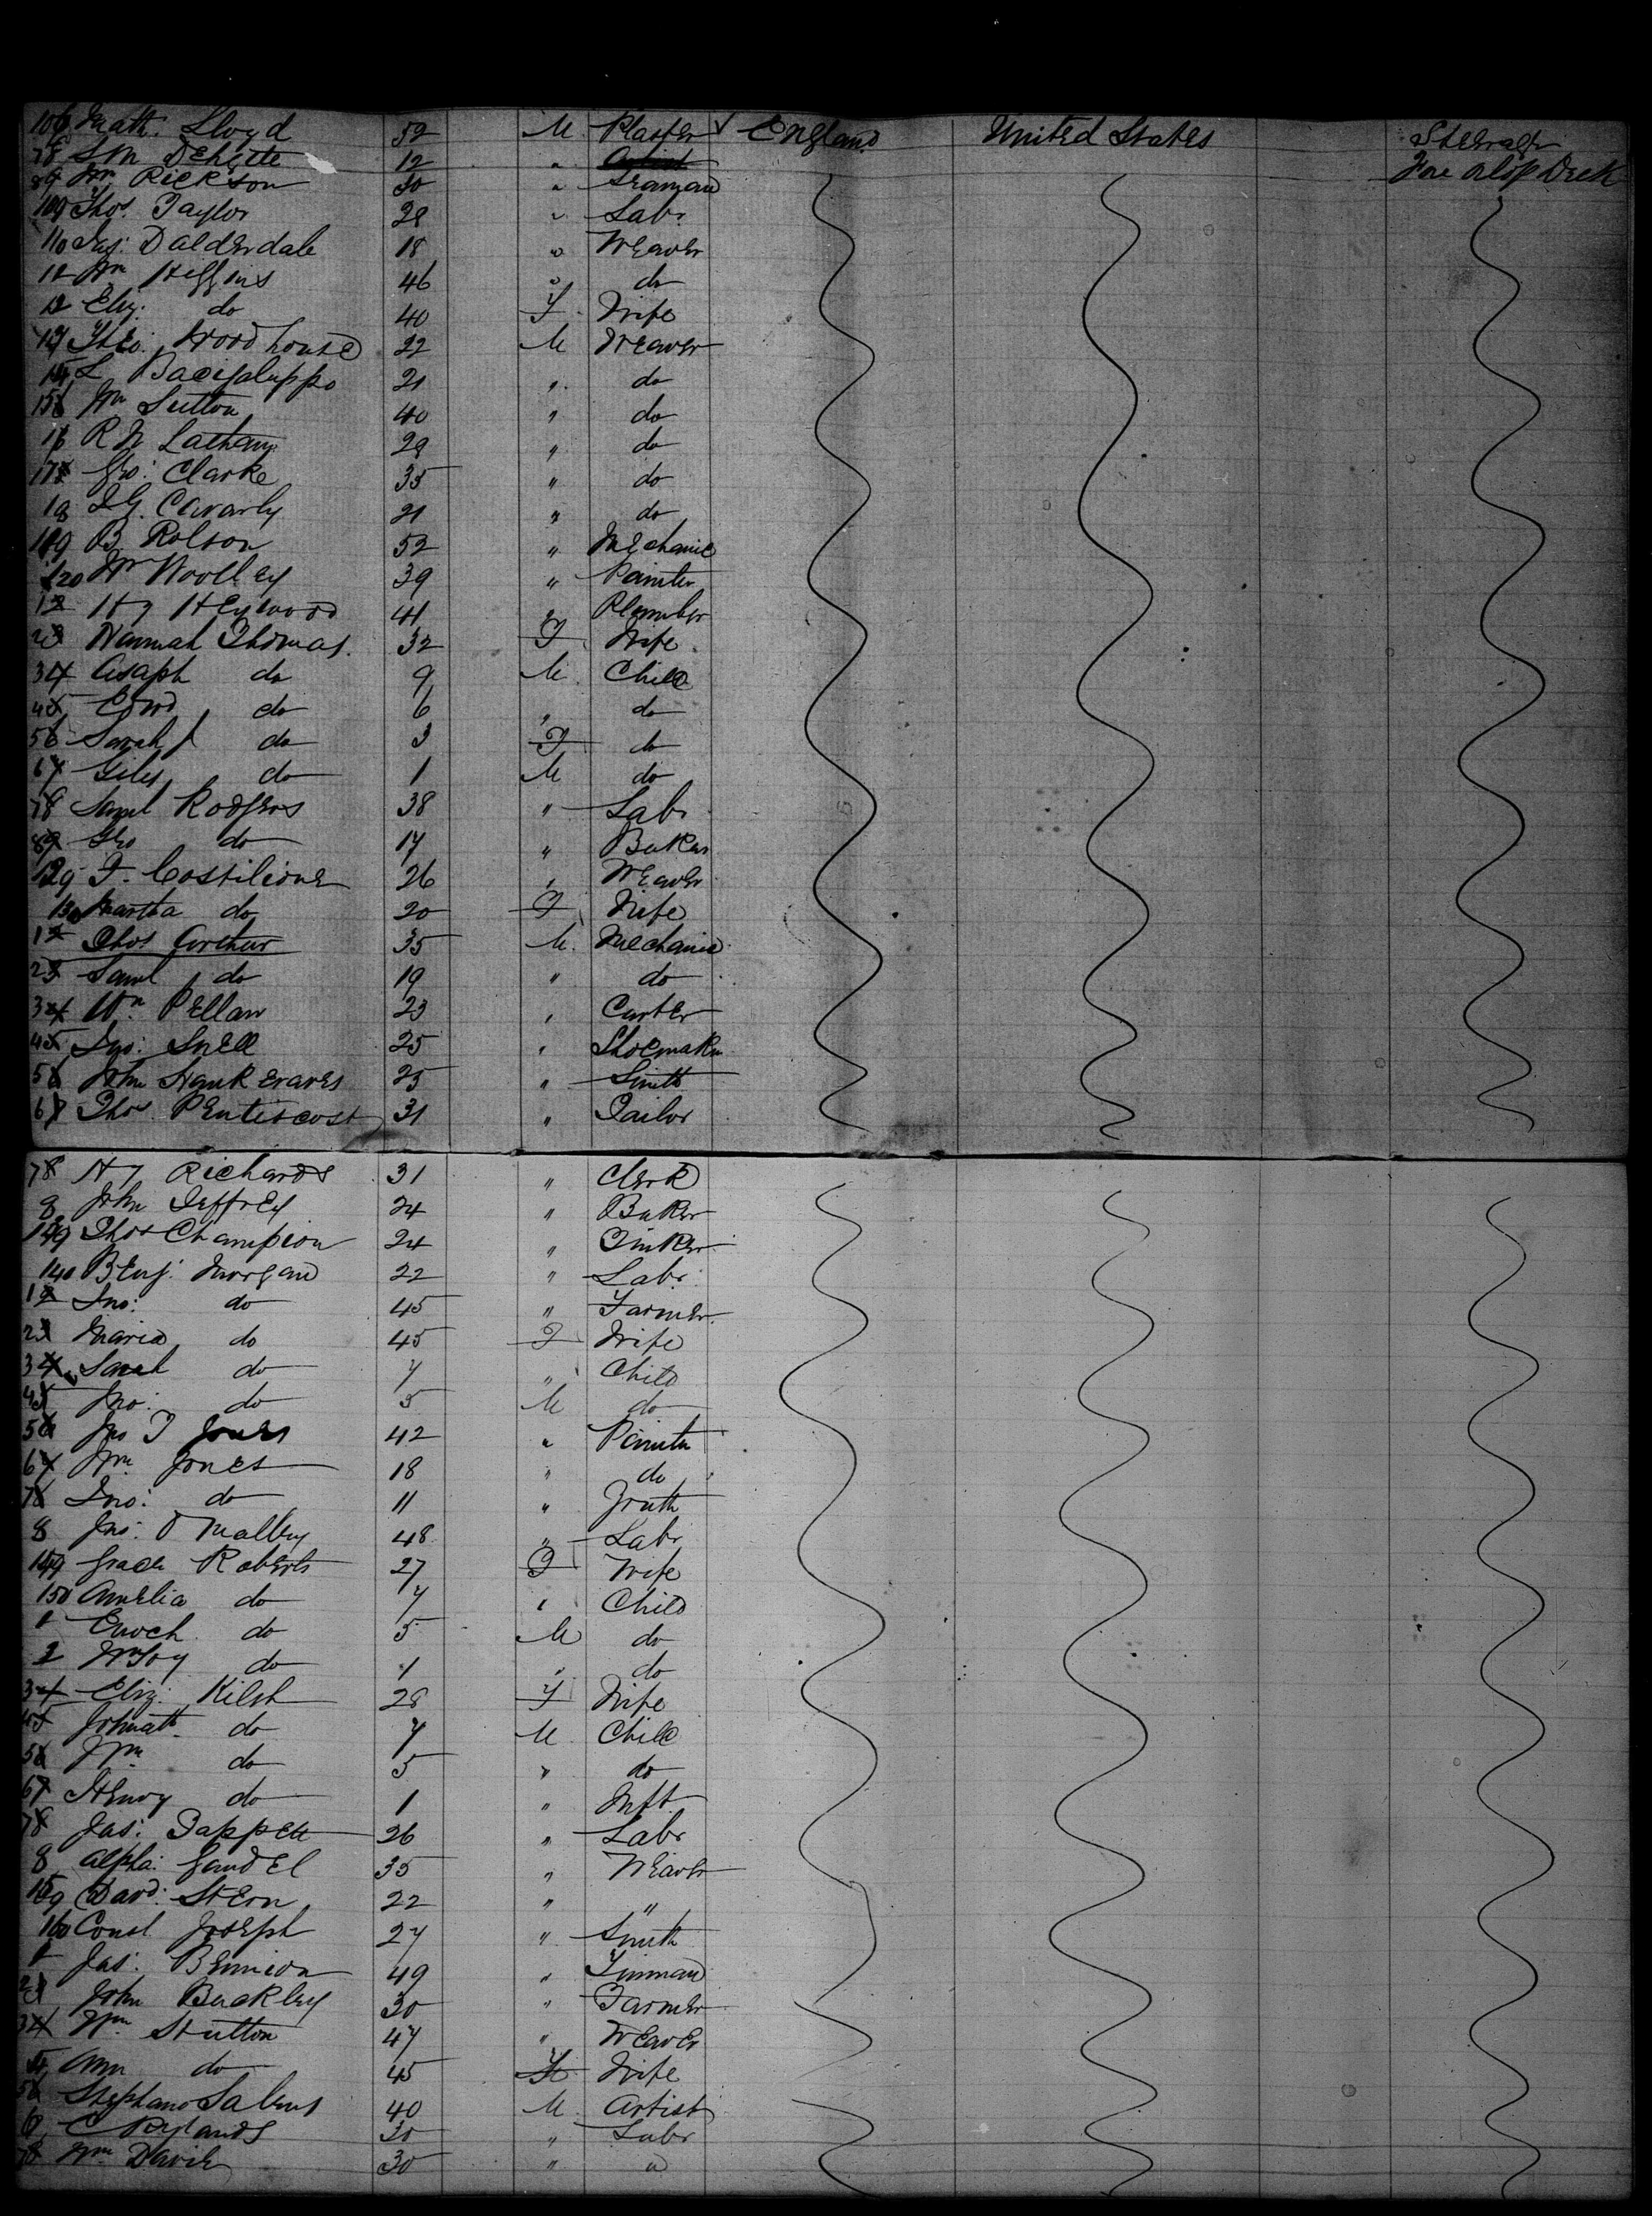 106 Math. Lloyd 52 M Plaster England United States Steerage
78 S M 12 " Artist Fore Orlop Deck
89 Wm Rickson 30 " Seaman
109 Thos. Taylor 28 " Labr
110 Jas: Dalderdale 18 " Weaver
12 Wm Heffins 46 " do
12 Eliz: do 40 F Wife
13 Theo. Woodhouse 22 M Weaver
14 L Bacigaluppo 21 " do
15 Wm Sutton 40 " do
16 R N Latham 29 " do
17 Geo: Clarke 35 " do
18 I G. Cavarly 21 " do
119 B Rolson 52 " Mechanic
120 Wm Woolley 39 " Painter
12 Hy Heywood 41 " Plumber
23 Hannah Thomas. 32 F Wife
34 Asaph do 9 M Child
45 Edwd do 6 " do
56 Sarah J do 3 F do
67 Giles do 1 M do
78 Saml Rodgers 38 " Labr
89 Geo do 17 " Baker
129 F. Costilione 26 " Weaver
130 Martha do 20 F Wife
12 Thos Arthur 35 M. Mechanic
23 Saml do 19 " do
34 Wm Pellaw 23 " Carter
45 Jno: Snell 25 " Shoemaker
56 John Hawk Eraves 25 " Smith
67 Thos Pentiscost 31 " Tailor
78 Hy Richards 31 " Clerk
8 John Jeffrey 24 " Baker
139 Thos Champion 24 " Tinker
140 Benj: Morgan 22 " Labr
12 Jno: do 45 " Farmer
23 Maria do 45 F Wife
34 Sarah do 7 " Child
45 Jno: do 5 M do
56 Jno T Jones 42 " Painter
67 Wm Jones 18 " do
78 Jno: do 11 " Youth
8 Jas: O Malley 48 " Labr
149 Grace Roberts 27 F Wife
150 Amelia do 7 " Child
1 Enoch do 5 M do
2 do 1 " do
34 Eliz: Kilsh 28 F Wife
45 Johnath do 7 M Child
56 Wm do 5 " do
67 Henry do 1 " Inft
78 Jas: Tappett 26 " Labr
8 Alpha: Gandel 35 " Weaver
159 David: Stern 22 " "
160 Const Joseph 27 " Smith
1 Jas: Bennion 49 " Tinman
23 John Buckley 30 " Farmer
34 Wm Stutton 47 " Weaver
4 Ann do 45 F Wife
56 Stephano 40 M Artist
6 C Rylands 30 " Labr
78 Wm Davis 30 " "